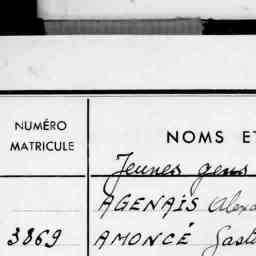 NUMÉRO
MATRICULE
NOMS ET
Jeunes gens
AGENAIS
3869 AMONCÉ